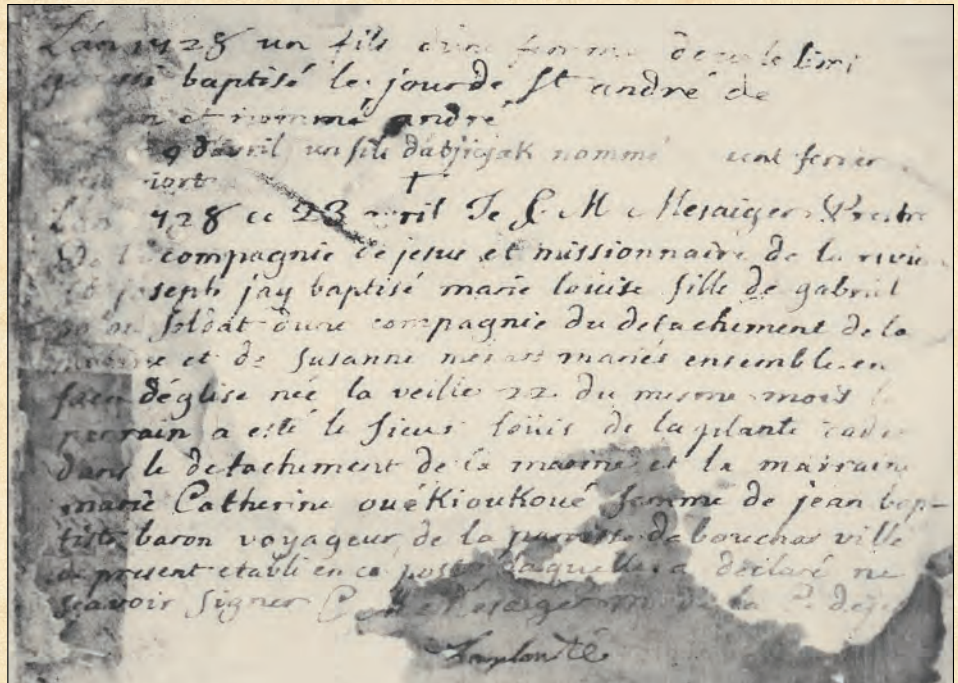 L'an 1728 un fils d'une femme
baptisé le jour de St andré de
et nommé andré
9 d'avril un fils d'abjicjak nommé
mort †
L'an 1728 ce 23 avril Je C M Mesaiger Prestre
de la compagnie de jesus et missionnaire de la rivie
St joseph jay baptisé marie louise fille de gabriel
soldat d'une compagnie du detachement de la
marine et de Susanne mariés ensemble en
face d'église née la veille 22 du mesme mois le
parrain a esté le Sieur louis de la plante cadet
dans le detachement de la marine et la marraine
marie Catherine ouékioukoué femme de jean bap-
tiste baron voyageur de la paroisse de boucherville
a present etabli en ce poste laquelle a déclaré ne
scavoir signer C Mesaiger m de la C. de je
Laplante